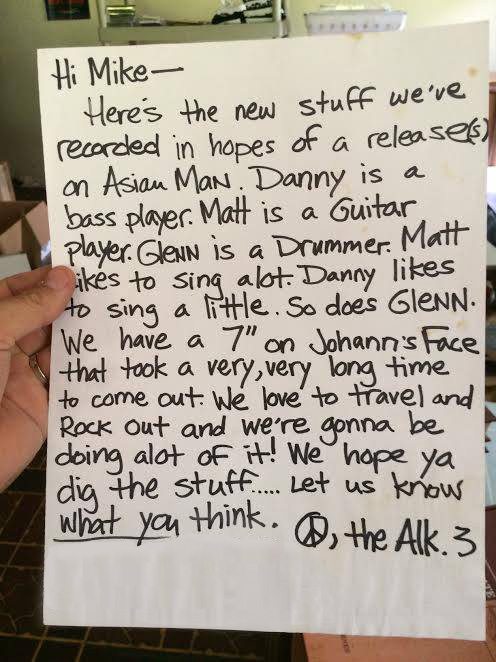 Hi Mike—
Here's the new stuff we've
recorded in hopes of a release(s)
on Asian Man. Danny is a
bass player. Matt is a Guitar
player. Glenn is a Drummer. Matt
likes to sing alot. Danny likes
to sing a little. So does Glenn.
We have a 7" on Johann's Face
that took a very, very long time
to come out. We love to travel and
Rock out and we're gonna be
doing alot of it! We hope ya
dig the stuff..... Let us know
what you think. ☮, the Alk. 3